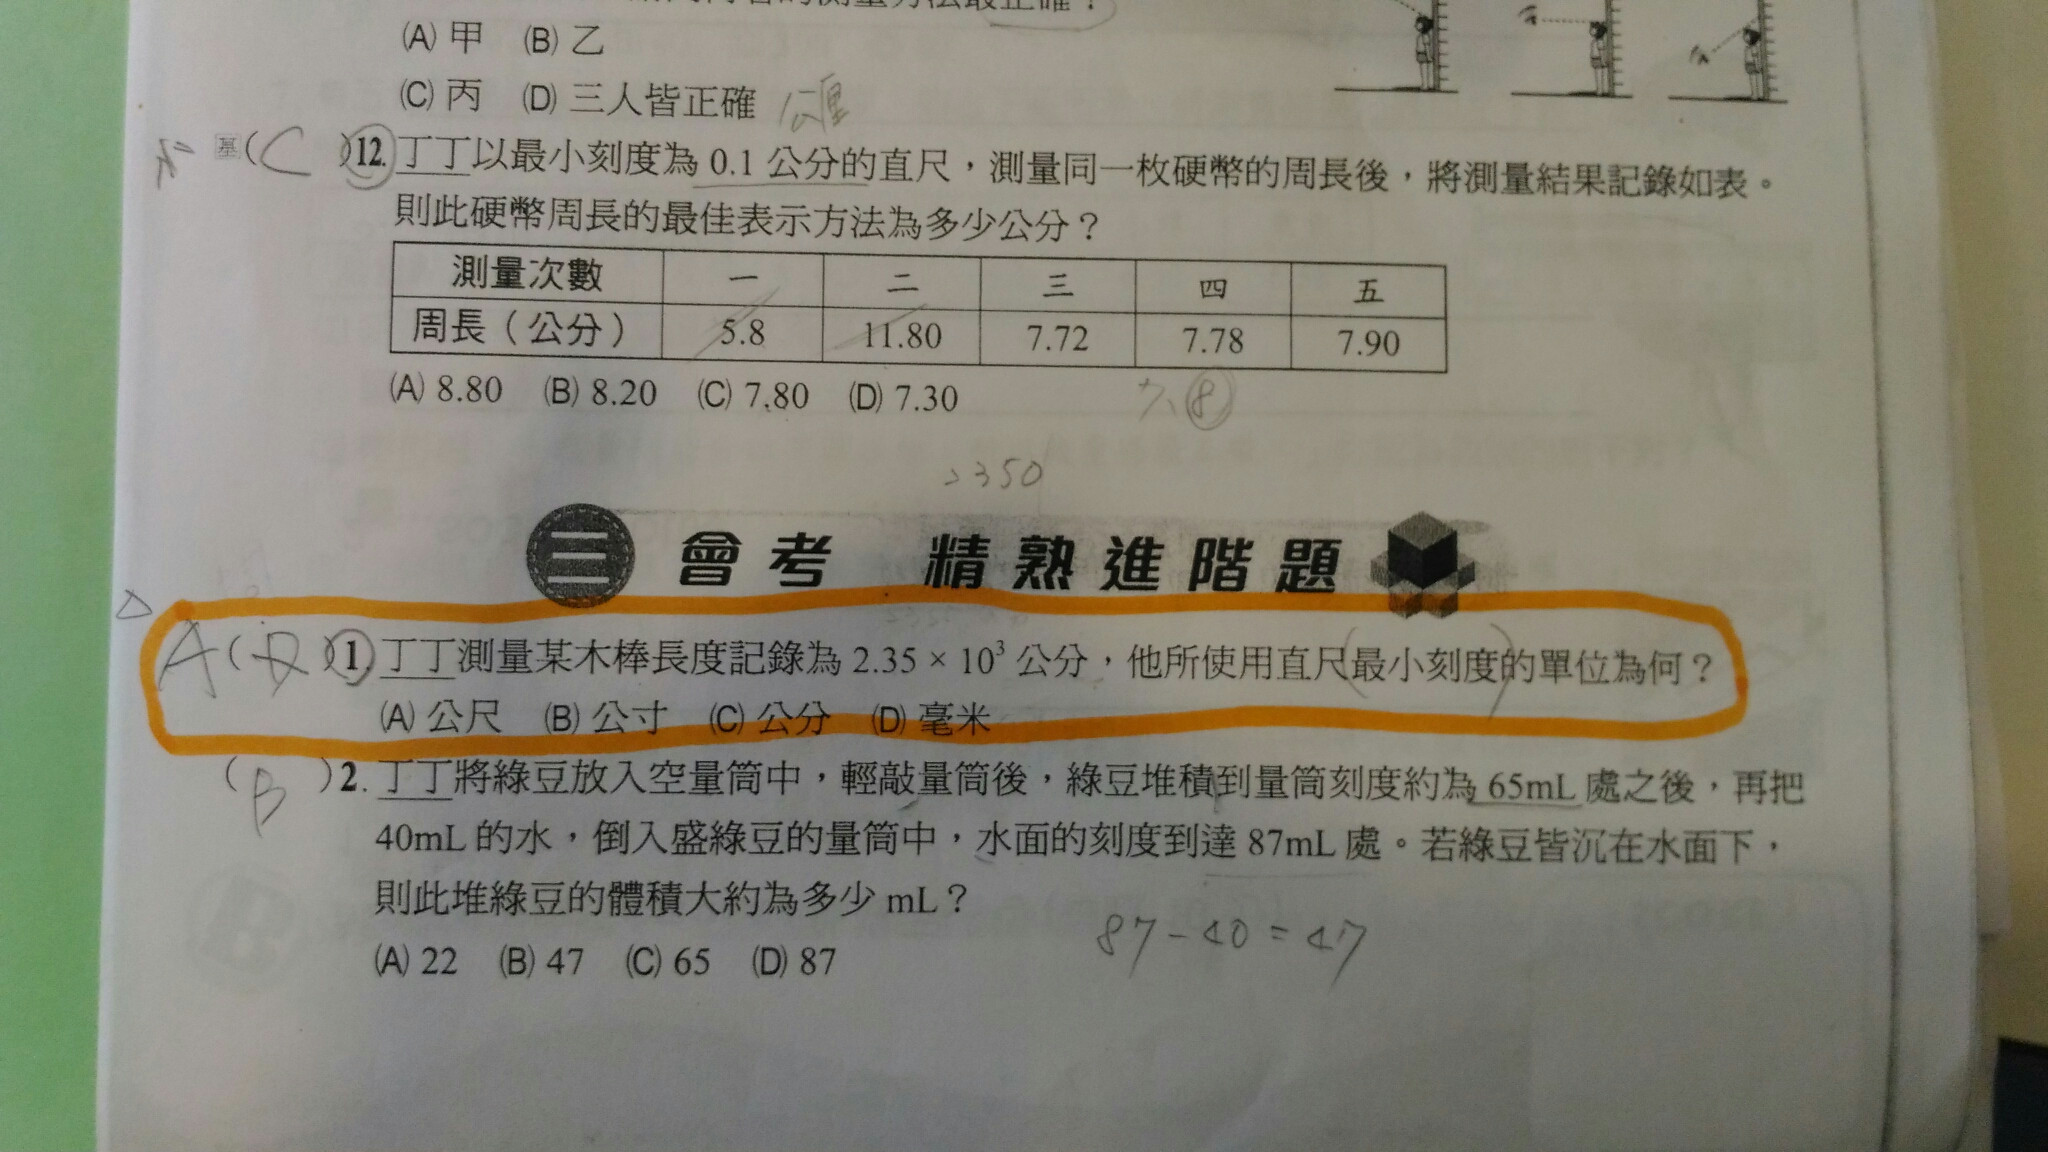 (A) 甲 (B) 乙
(C) 丙 (D) 三人皆正確 公厘
基( C )12. 丁丁以最小刻度為 0.1 公分的直尺,測量同一枚硬幣的周長後,將測量結果記錄如表。
則此硬幣周長的最佳表示方法為多少公分?
測量次數 一 二 三 四 五
周長(公分) 5.8 11.80 7.72 7.78 7.90
(A) 8.80 (B) 8.20 (C) 7.80 (D) 7.30
2350
三 會考 精熟進階題
A( )1. 丁丁測量某木棒長度記錄為 2.35 × 10³ 公分,他所使用直尺(最小刻度)的單位為何?
(A) 公尺 (B) 公寸 (C) 公分 (D) 毫米
( B )2. 丁丁將綠豆放入空量筒中,輕敲量筒後,綠豆堆積到量筒刻度約為 65mL 處之後,再把
40mL 的水,倒入盛綠豆的量筒中,水面的刻度到達 87mL 處。若綠豆皆沉在水面下,
則此堆綠豆的體積大約為多少 mL?
87-40=47
(A) 22 (B) 47 (C) 65 (D) 87